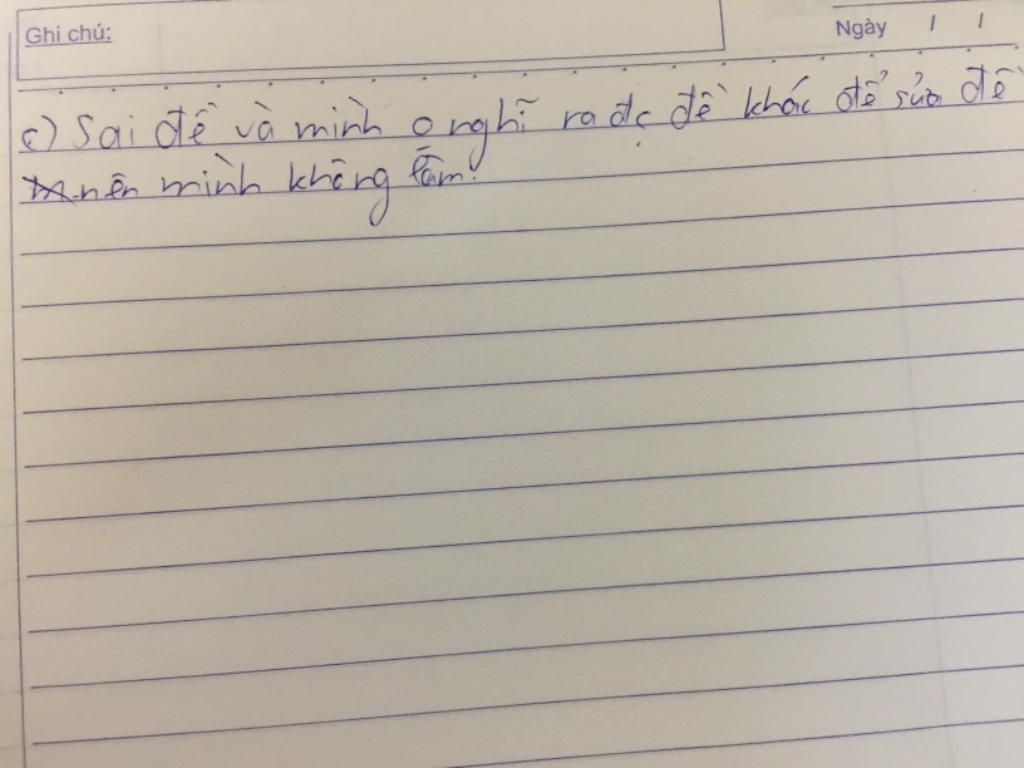 Ghi chú:
Ngày / /
c) Sai đề và mình o nghĩ ra đc đề khác để sửa đề
nên mình không làm.